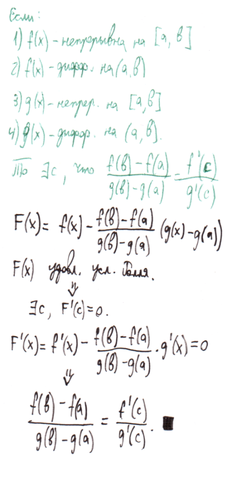 Если:
1) f(x) - непрерывна на [a, b]
2) f(x) - дифф. на (a, b)
3) g(x) - непрер. на [a, b]
4) g(x) - дифф. на (a, b).
То ∃c, что (f(b) - f(a))/(g(b) - g(a)) = f'(c)/g'(c)
F(x) = f(x) - (f(b) - f(a))/(g(b) - g(a)) (g(x) - g(a))
F(x) удовл. усл. Ролля.
⇓
∃c, F'(c) = 0.
F'(x) = f'(x) - (f(b) - f(a))/(g(b) - g(a)) · g'(x) = 0
⇓
(f(b) - f(a))/(g(b) - g(a)) = f'(c)/g'(c). ■